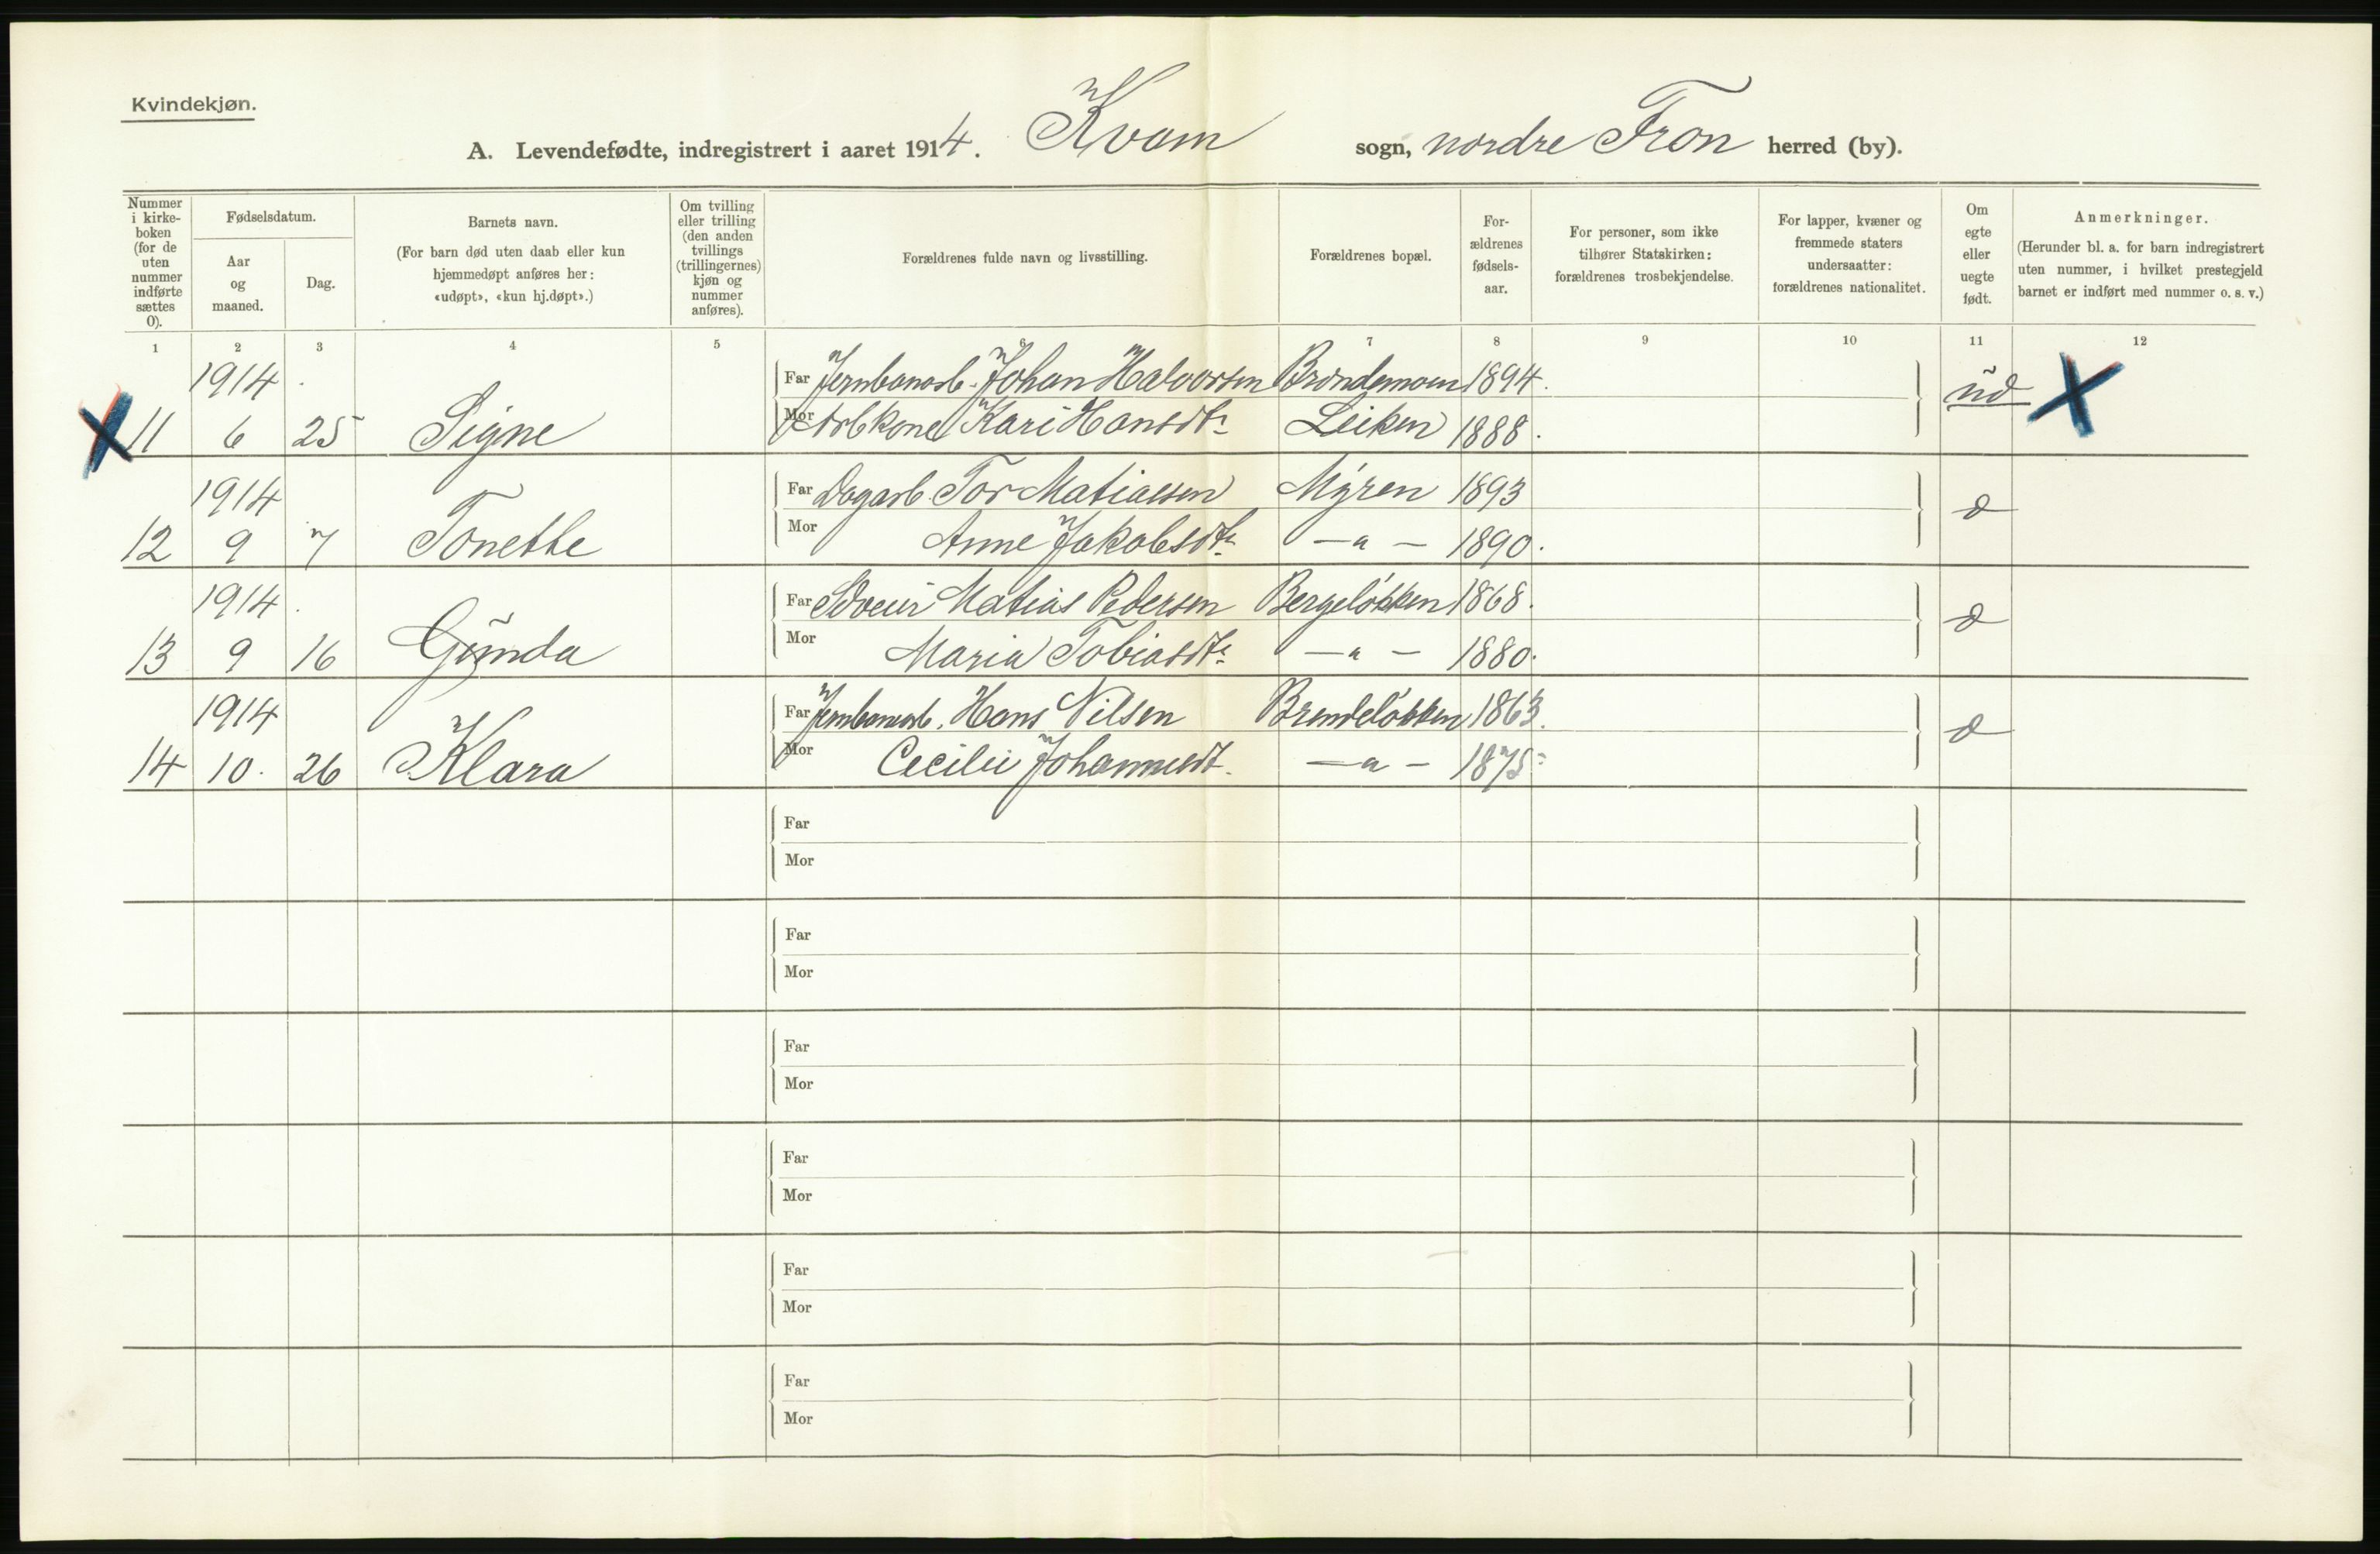 Kvindekjøn.
A. Levendefødte, indregistrert i aaret 1914. Kvam sogn, nordre Fron herred (by).
Nummer i kirke-boken (for de uten nummer indførte sættes 0).
Fødselsdatum.
Aar og maaned.
Dag.
Barnets navn.
(For barn død uten daab eller kun hjemmedøpt anføres her: «udøpt», «kun hj.døpt».)
Om tvilling eller trilling (den anden tvillings (trillingernes) kjøn og nummer anføres).
Forældrenes fulde navn og livsstilling.
Forældrenes bopæl.
For-ældrenes fødsels-aar.
For personer, som ikke tilhører Statskirken: forældrenes trosbekjendelse.
For lapper, kvæner og fremmede staters undersaatter: forældrenes nationalitet.
Om egte eller uegte født.
Anmerkninger.
(Herunder bl. a. for barn indregistrert uten nummer, i hvilket prestegjeld barnet er indført med nummer o. s. v.)
1 2 3 4 5 6 7 8 9 10 11 12
1914 Far Jernbanarb. Johan Halvorsen 1894.
X 11 6 25 Signe Mor Arbkone Kari Hansdtr Leiken 1888. ud X
1914 Far Dagarb. Tor Matiassen Myren 1893
12 9 7 Tonette Mor Anne Jakobsdtr. — " — 1890. d
1914 Far Matias Pedersen Bergeløkken 1868.
13 9 16 Gunda Mor Maria Tobiasdtr. — " — 1880. d
1914 Far Jernbanearb. Hans Nilsen Brendeløkken 1863.
14 10. 26 Klara Mor Cecilie Johannesdt. — " — 1875 d
Far
Mor
Far
Mor
Far
Mor
Far
Mor
Far
Mor
Far
Mor